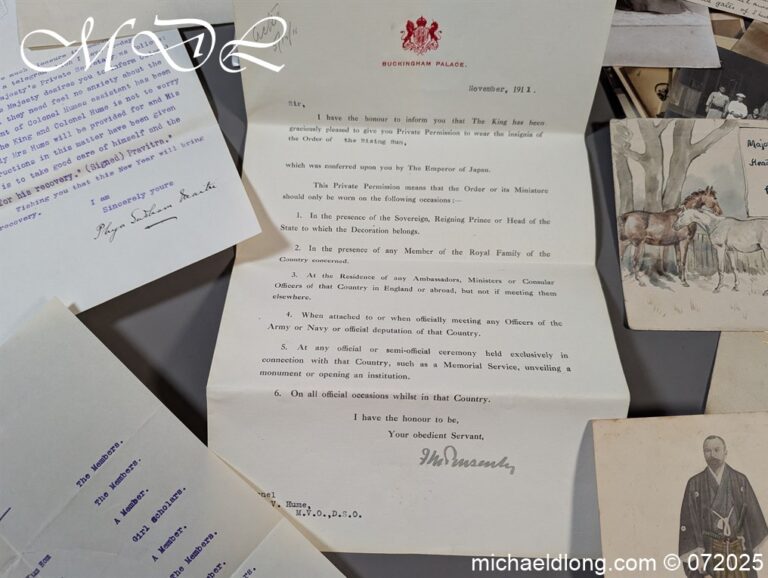 MDL
BUCKINGHAM PALACE.
November, 1911.
Sir,
I have the honour to inform you that The King has been
graciously pleased to give you Private Permission to wear the insignia of
the Order of the Rising Sun,
which was conferred upon you by The Emperor of Japan.
This Private Permission means that the Order or its Miniature
should only be worn on the following occasions :—
1. In the presence of the Sovereign, Reigning Prince or Head of the
State to which the Decoration belongs.
2. In the presence of any Member of the Royal Family of the
Country concerned.
3. At the Residence of any Ambassadors, Ministers or Consular
Officers of that Country in England or abroad, but not if meeting them
elsewhere.
4. When attached to or when officially meeting any Officers of the
Army or Navy or official deputation of that Country.
5. At any official or semi-official ceremony held exclusively in
connection with that Country, such as a Memorial Service, unveiling a
monument or opening an institution.
6. On all official occasions whilst in that Country.
I have the honour to be,
Your obedient Servant,
onel
V. Hume,
M.V.O., D.S.O.
Majesty's Private Se
Majesty desires you to inform
they need feel no anxiety about the
nt of Colonel Humes assistant has been
The King and Colonel Hume is not to worry
ly Mrs Hume will be provided for and His
tructions in this matter have been given
is to take good care of himself and the
for his recovery." (Signed) Pravitra.
Wishing you that this New Year will bring
recovery.
I am
Sincerely yours
The Members.
The Members.
A Member.
Girl Scholars.
A Member.
The Members.
A Member.
Members.
michaeldlong.com © 072025